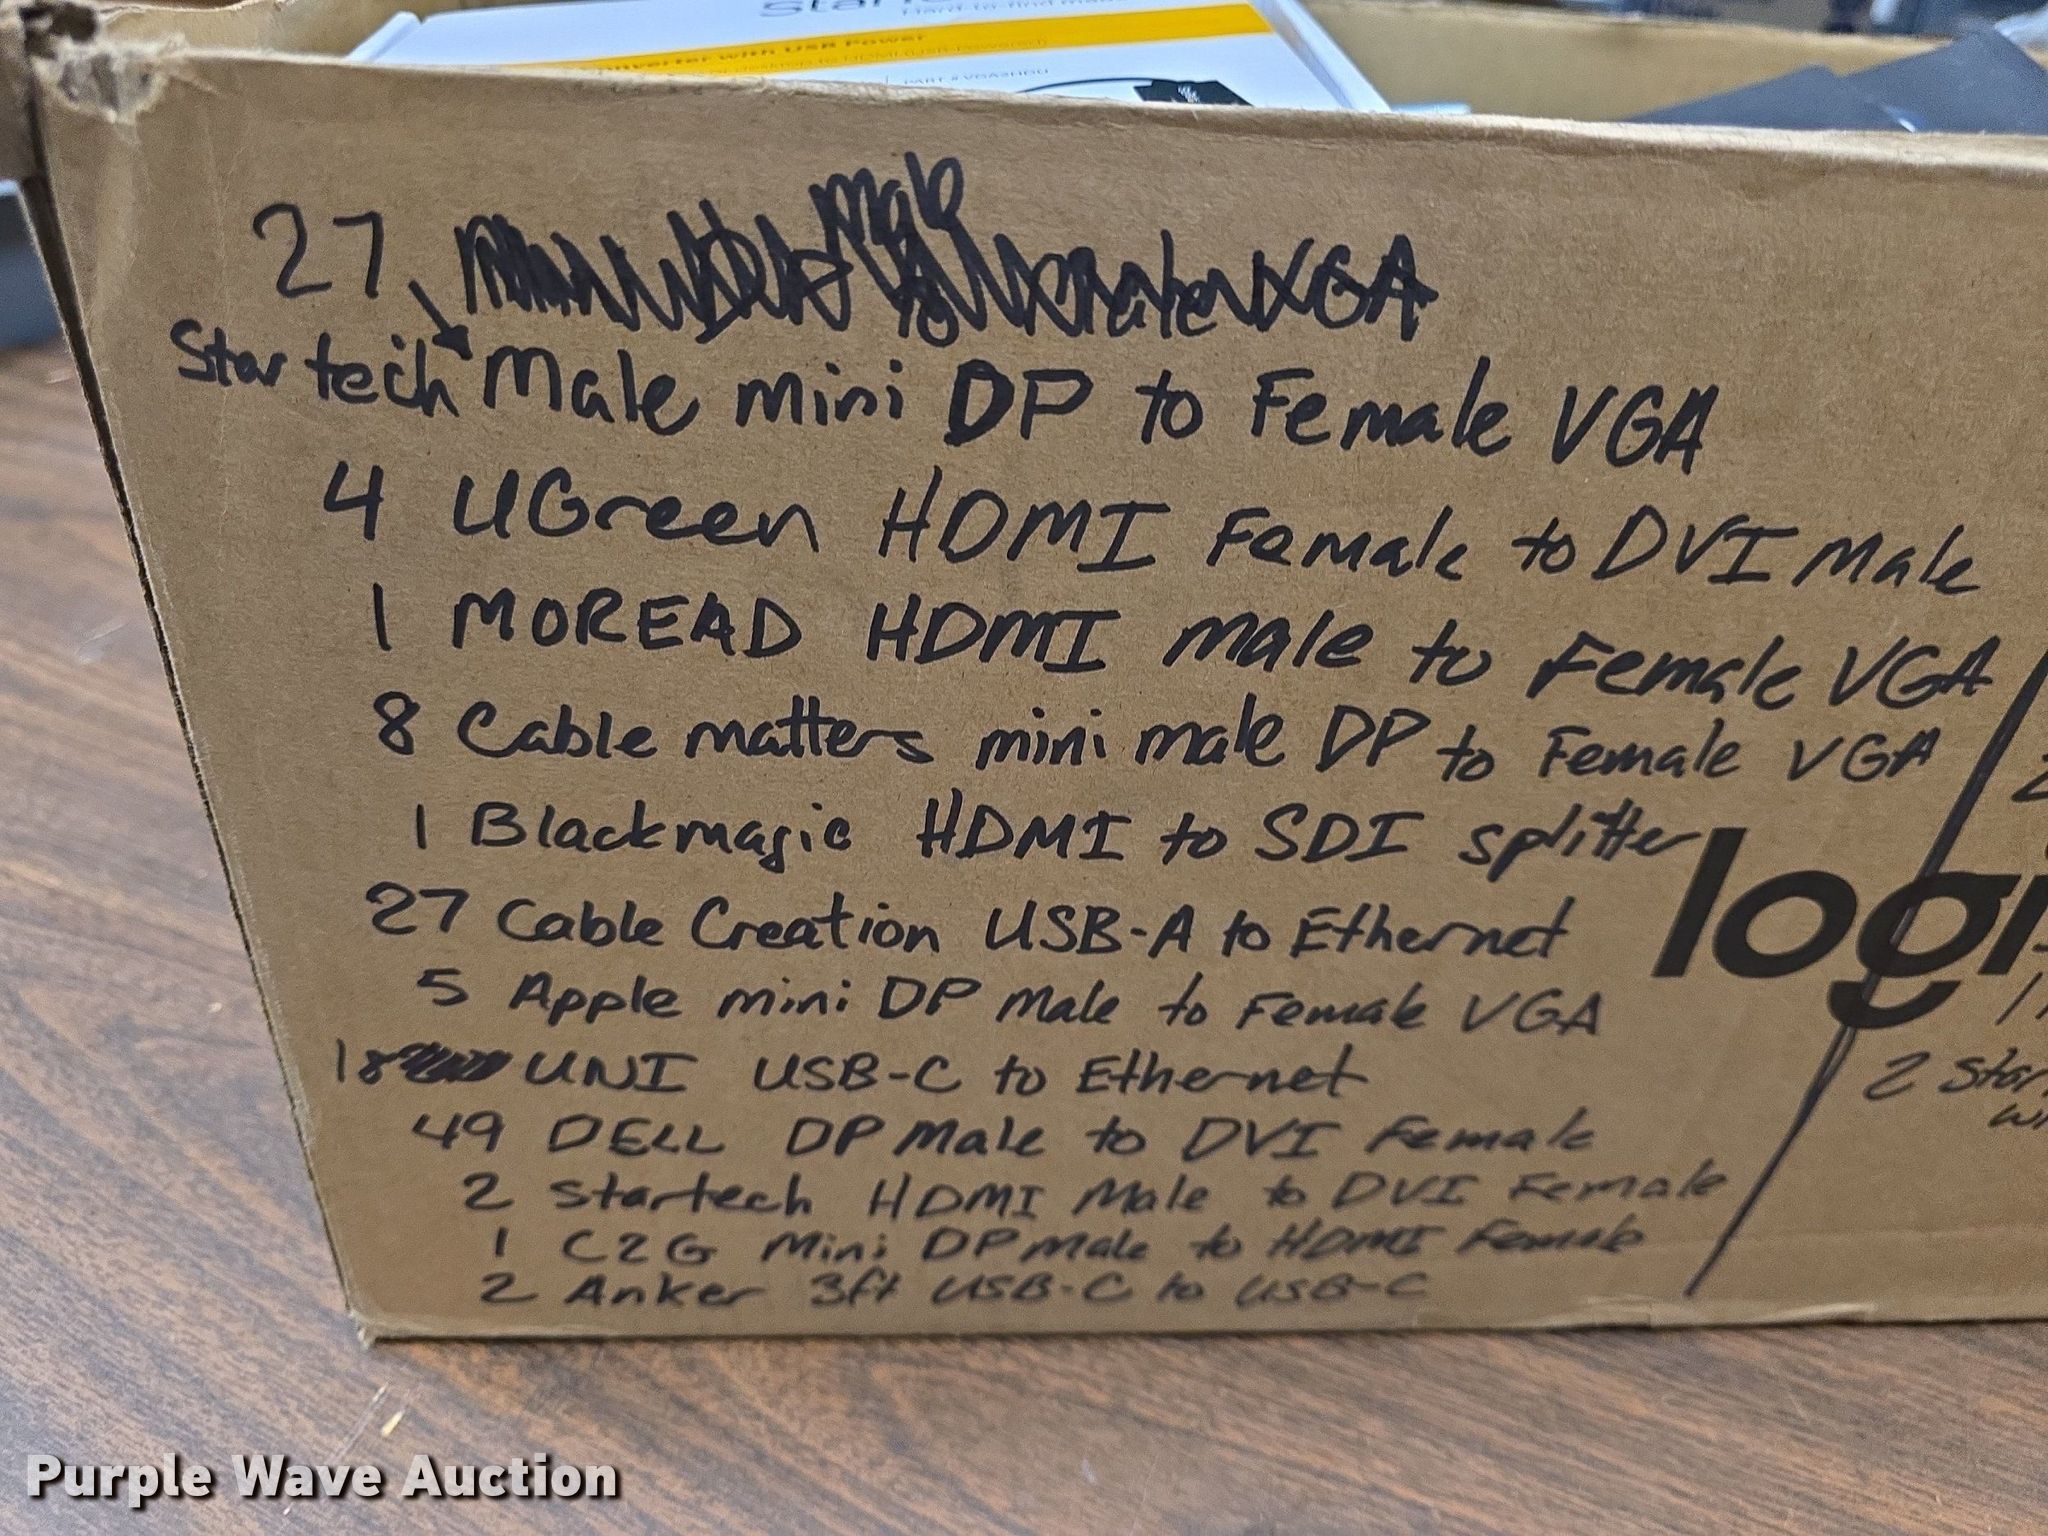 Converter with USB Power
PART # VGA2HDU
27
Startech Male mini DP to Female VGA
4 UGreen HDMI Female to DVI Male
1 MOREAD HDMI male to Female VGA
8 Cable matters mini male DP to Female VGA
1 Blackmagic HDMI to SDI splitter
27 Cable Creation USB-A to Ethernet
5 Apple mini DP Male to Female VGA
18 UNI USB-C to Ethernet
49 DELL DP Male to DVI Female
2 Startech HDMI Male to DVI Female
1 C2G Mini DP Male to HDMI Female
2 Anker 3ft USB-C to USB-C
logi
2 Star
Purple Wave Auction